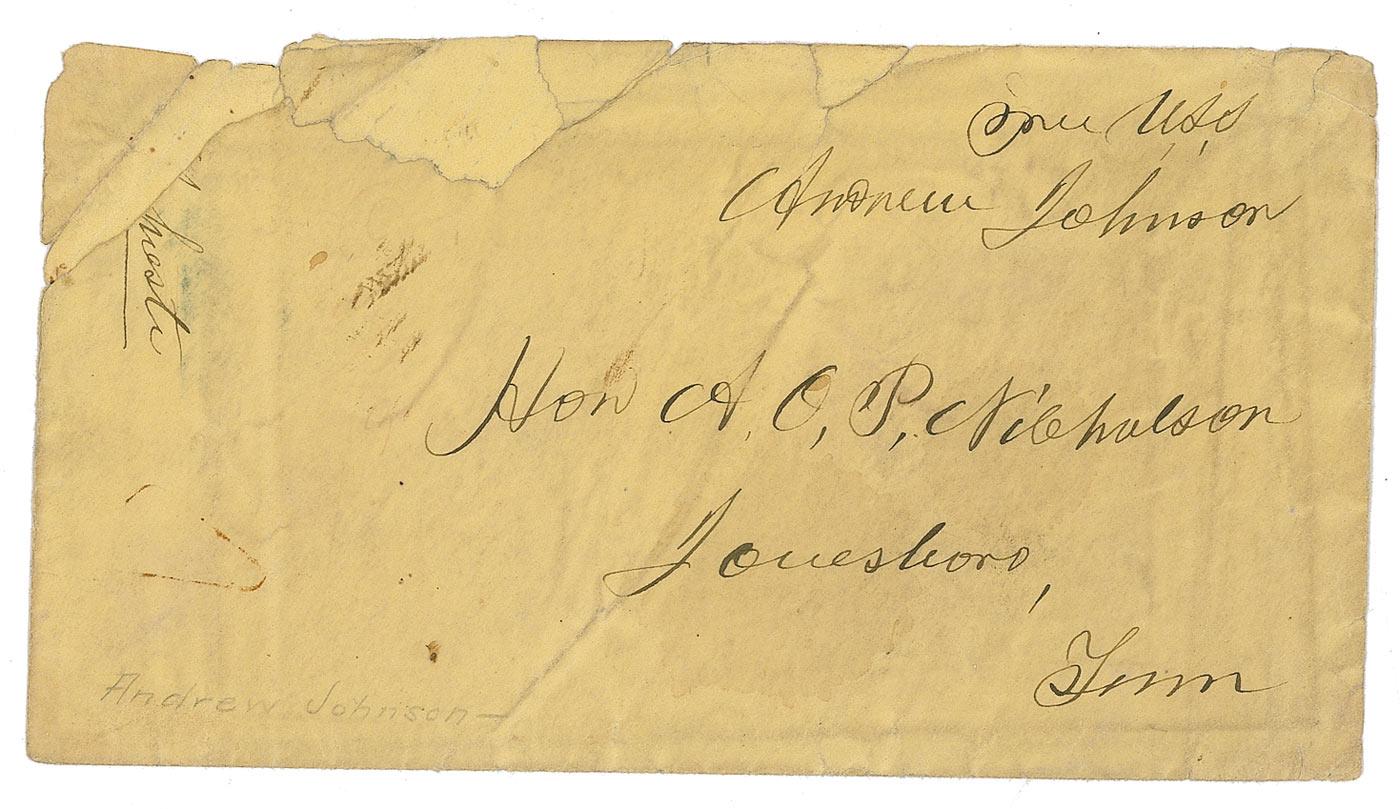 Free U.S.S
Andrew Johnson
Hon A. O. P. Nicholson
Jonesboro,
Tenn
Andrew Johnson —